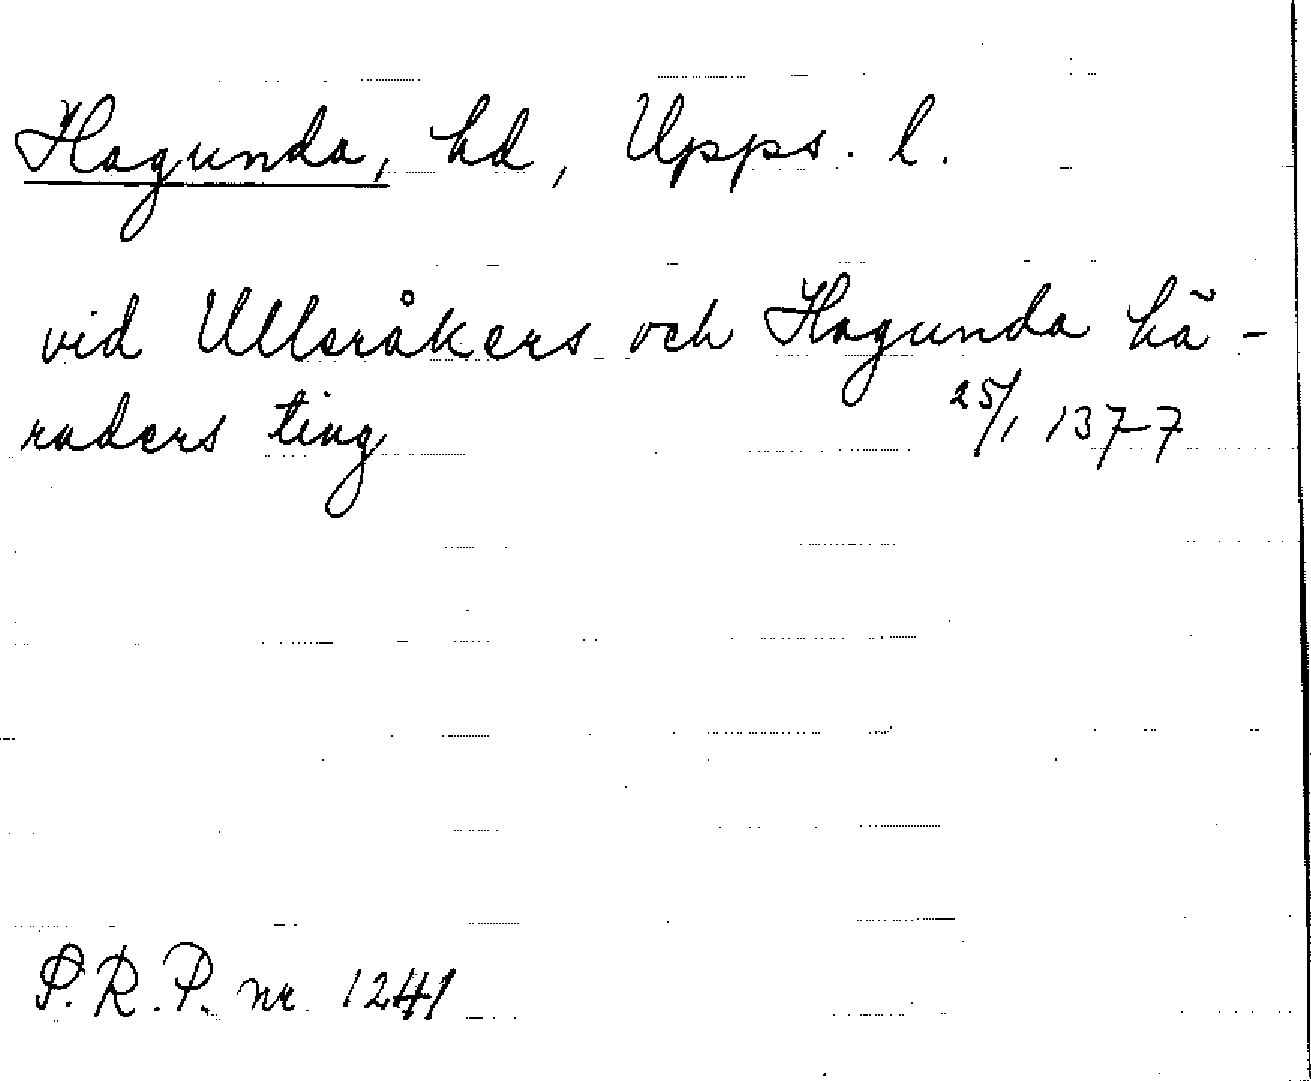 Hagunda, hd, Upps. l.
vid Ullsråkers och Hagunda hä-
raders ting 25/1 1377
S.R.P. nr 1241